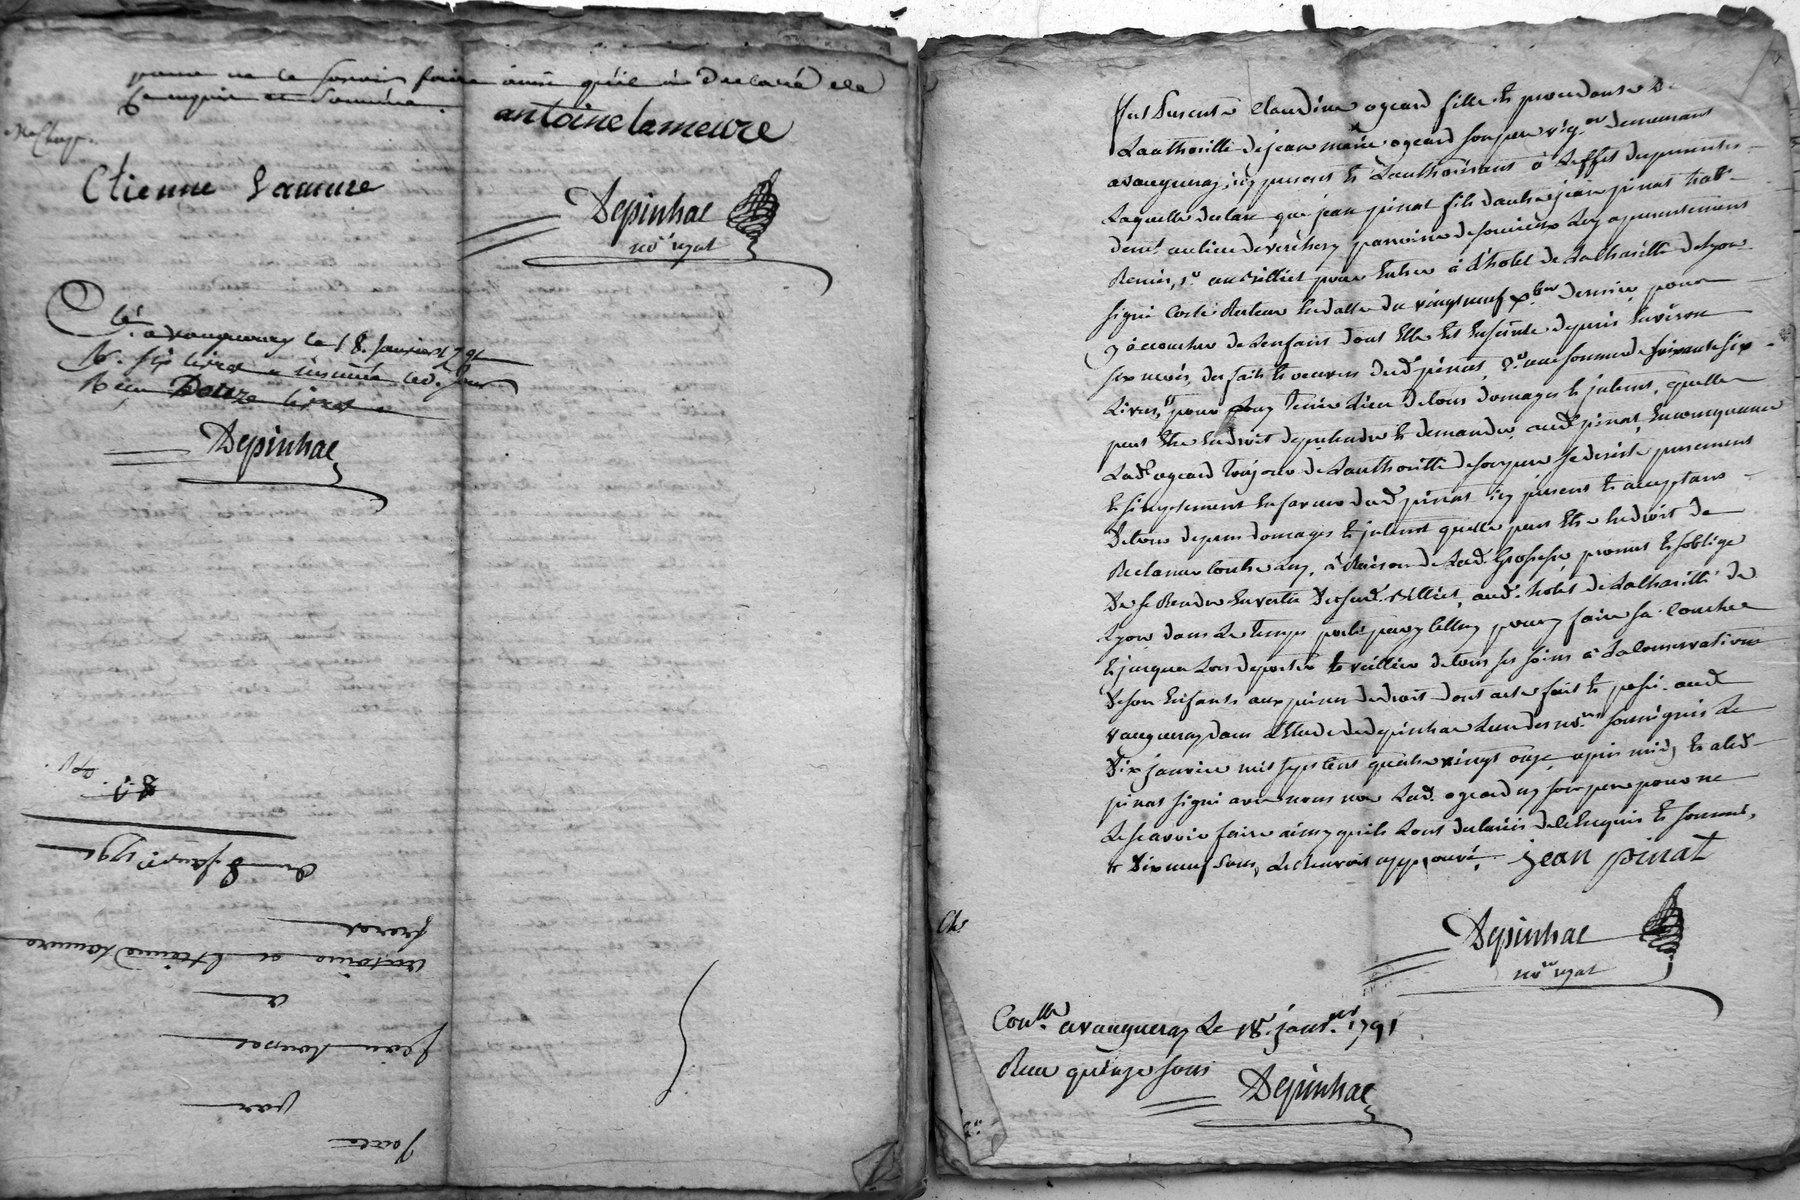 pour ne le scavoir faire ainsi qu'il à declaré de ce
enquis et sommé.
antoine lameure
Etienne Lamure
Depinhac
no.re royal
Clé a vaugneray le 18. Janvier 1791
R. six livres
Reçu Douze livres
Depinhac
du 8 janv.r 1791
par
jean
a
antoine et Etienne Lamure
freres
fut presente Claudine ogeard fille et procedante de
Lauthorité de jean marie ogeard son pere vig.on demeurant
a vaugneray, icy present et L'authorisant à L'effet des presentes
Laquelle declare que jean pinat fils d'autre jean pinat hab.t
dem.t au lieu de verchery parroisse de soucieux Luy a presentement
Remis, 1.o un billiet pour Entrer à L'hotel de La charitté de Lyon
signé Coste Recteur En datte du vingt neuf x.bre dernier, pour
y accoucher de L'enfant dont Elle Est Enceinte depuis Environ
six mois, des faits et oeuvres dud. pinat, 2.o une somme de soixante six
Livres, pour Luy tenir Lieu de tous domages et interets, quelle
peut Etre En droit de pretendre et demander aud. pinat, En consequence
Lad. ogeard toujours de Lauthorité de son pere se desiste purement
et simplement En faveur dud. pinat icy present et acceptant
De tous depens domages et interets quelle peut Etre En droit de
Reclamer Contre Luy, à Raison de Lad. Grossesse, promet et s'oblige
De se Rendre En vertu Du susd. billiet, aud. hotel de La charitté de
Lyon dans Le temps porté par icelluy pour y faire sa couche
et jusqua Lors de porter et veillier de tous ses soins à La conservation
De son Enfant aux peines de droit dont acte fait et passé aud.
vaugneray dans L'Etude de depinhac L'un des no.res soussignés Le
Dix janvier mil sept cent quatre vingt onze, apres midy, et a led.
pinat signé avec nous no.re Lad. ogeard ny son pere pour ne
Le scavoir faire ainsy qu'ils L'ont declaré de ce Enquis et sommé,
Dix neuf sous, approuvé. jean pinat
Depinhac
no.re royal
Con.llé a vaugneray Le 18. janv.er 1791
Reçu quinze sous
Depinhac